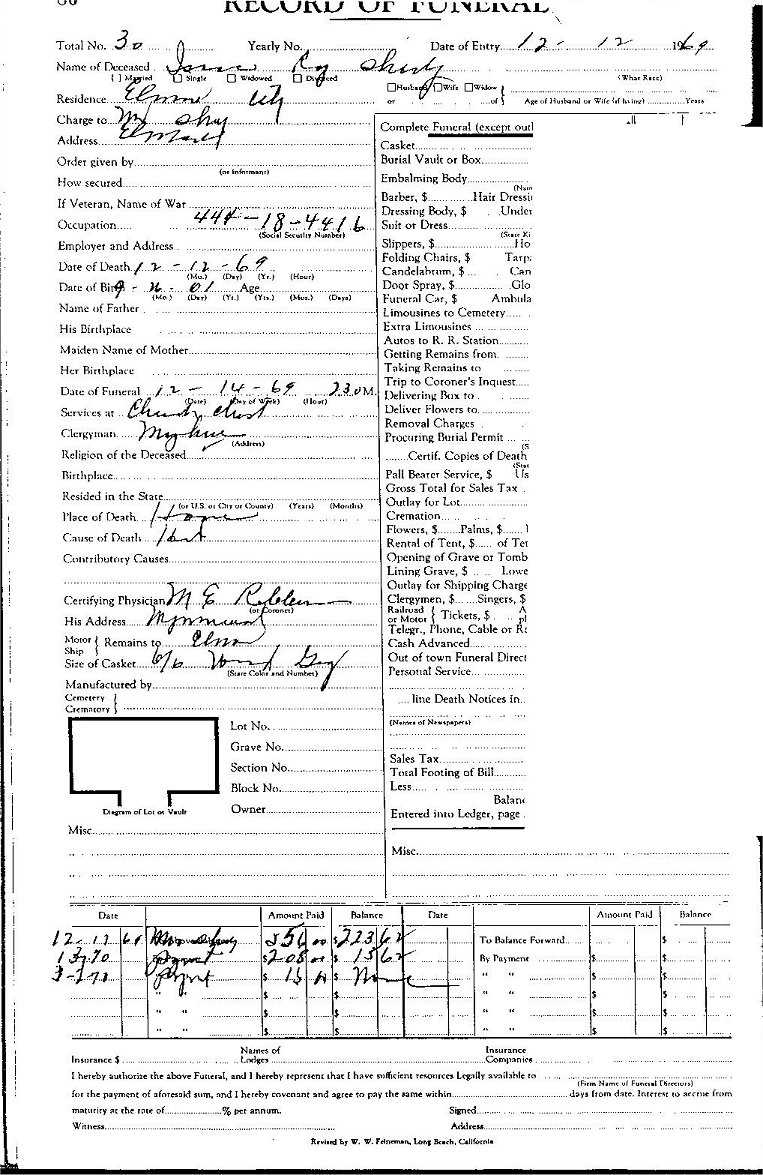 RECORD OF FUNERAL
Total No. 30 Yearly No. Date of Entry 12 - 12 1969
Name of Deceased Ray
( ) Married Single Widowed Divorced
Husband Wife Widow (What Race)
or of Age of Husband or Wife (if living) Years
Residence Elmore City
Charge to Mr
Address Elmore
Order given by
(or Informant)
How secured
If Veteran, Name of War
Occupation 444-18-4416
(Social Security Number)
Employer and Address
Date of Death 12-12-69
(Mo.) (Day) (Yr.) (Hour)
Date of Birth 9- -01 Age
(Mo.) (Day) (Yr.) (Yrs.) (Mos.) (Days)
Name of Father
His Birthplace
Maiden Name of Mother
Her Birthplace
Date of Funeral 12-14-69 230 M.
(Date) (Day of Week) (Hour)
Services at Church Christ
Clergyman
(Address)
Religion of the Deceased
Birthplace
Resided in the State
(or U.S. or City or County) (Years) (Months)
Place of Death Home
Cause of Death
Contributory Causes
Certifying Physician M E
(or Coroner)
His Address
Motor Ship Remains to Elmore
Size of Casket 6/6 Grey
(State Color and Number)
Manufactured by
Cemetery
Crematory
Lot No.
Grave No.
Section No.
Block No.
Owner
Diagram of Lot or Vault
Misc.
Complete Funeral (except outl
Casket
Burial Vault or Box
Embalming Body
(Nam
Barber, $ Hair Dressi
Dressing Body, $ Under
Suit or Dress
(State Ki
Slippers, $ Ho
Folding Chairs, $ Tarp
Candelabrum, $ Can
Door Spray, $ Glo
Funeral Car, $ Ambula
Limousines to Cemetery
Extra Limousines
Autos to R. R. Station
Getting Remains from
Taking Remains to
Trip to Coroner's Inquest
Delivering Box to
Deliver Flowers to
Removal Charges
Procuring Burial Permit
(S
Certif. Copies of Death
(Stat
Pall Bearer Service, $ Us
Gross Total for Sales Tax
Outlay for Lot
Cremation
Flowers, $ Palms, $
Rental of Tent, $ of Ter
Opening of Grave or Tomb
Lining Grave, $ Lowe
Outlay for Shipping Charge
Clergymen, $ Singers, $
Railroad or Motor Tickets, $
Telegr., Phone, Cable or Ra
Cash Advanced
Out of town Funeral Direct
Personal Service
line Death Notices in
(Names of Newspapers)
Sales Tax
Total Footing of Bill
Less
Balanc
Entered into Ledger, page
Misc.
Date Amount Paid Balance Date Amount Paid Balance
12-17 69 $ 556 00 $ 223 62 To Balance Forward $
1 3-70 Paymt $ 208 00 $ 15 62 By Payment $
3-1-70 Paymt $ 15 $ None " " $
" " $ $ " " $
" " $ $ " " $
" " $ $ " " $
Insurance $ Names of Lodges Insurance Companies
I hereby authorize the above Funeral, and I hereby represent that I have sufficient resources Legally available to
(Firm Name of Funeral Directors)
for the payment of aforesaid sum, and I hereby covenant and agree to pay the same within days from date. Interest to accrue from
maturity at the rate of % per annum. Signed
Witness Address
Revised by W. W. Feineman, Long Beach, California